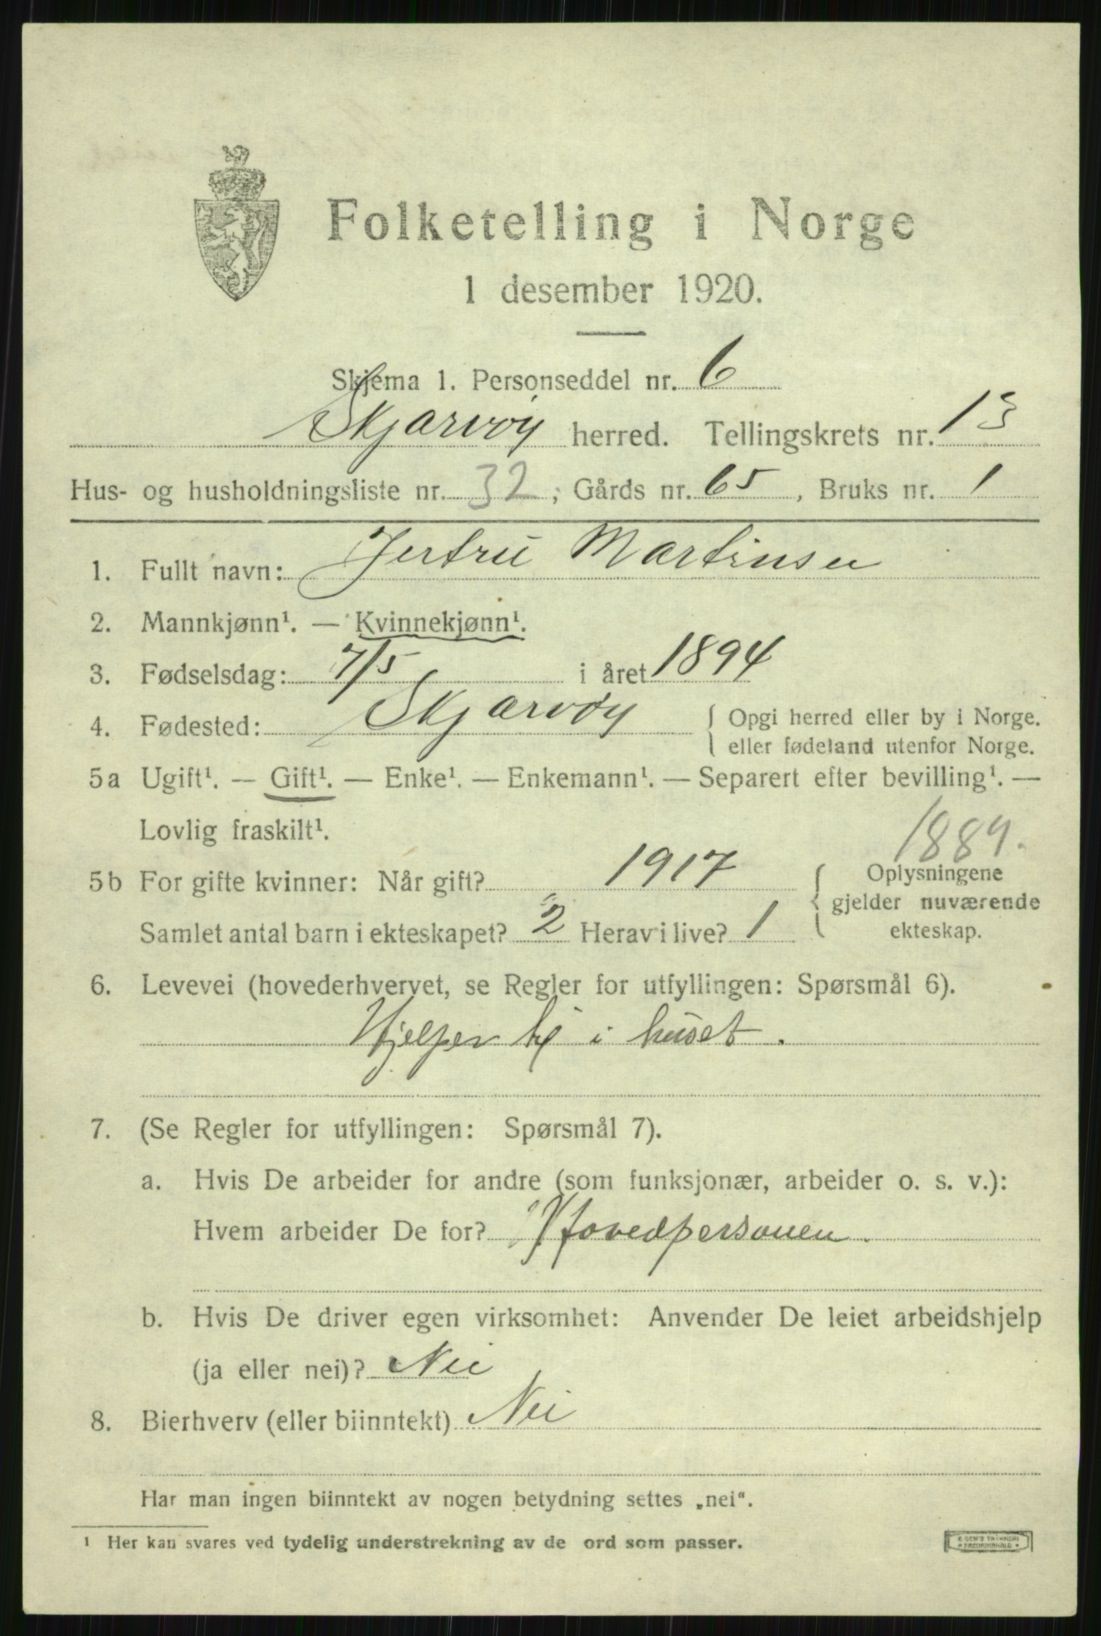 Folketelling i Norge
1 desember 1920.
Skjema 1. Personseddel nr. 6
Skjærvøy herred. Tellingskrets nr. 13
Hus- og husholdningsliste nr. 32; Gårds nr. 65, Bruks nr. 1
1. Fullt navn: Jertru Martinsen
2. Mannkjønn¹. — Kvinnekjønn¹.
3. Fødselsdag: 7/5 i året 1894
4. Fødested: Skjærvøy { Opgi herred eller by i Norge.
eller fødeland utenfor Norge.
5a Ugift¹. — Gift¹. — Enke¹. — Enkemann¹. — Separert efter bevilling¹. —
Lovlig fraskilt¹.
1889.
5b For gifte kvinner: Når gift? 1917 { Oplysningene
gjelder nuværende
Samlet antal barn i ekteskapet? 2 Herav i live? 1 ekteskap.
6. Levevei (hovederhvervet, se Regler for utfyllingen: Spørsmål 6).
Hjelper til i huset.
7. (Se Regler for utfyllingen: Spørsmål 7).
a. Hvis De arbeider for andre (som funksjonær, arbeider o. s. v.):
Hvem arbeider De for? Hovedpersonen.
b. Hvis De driver egen virksomhet: Anvender De leiet arbeidshjelp
(ja eller nei)? Nei
8. Bierhverv (eller biinntekt) Nei
Har man ingen biinntekt av nogen betydning settes „nei".
¹ Her kan svares ved tydelig understrekning av de ord som passer.